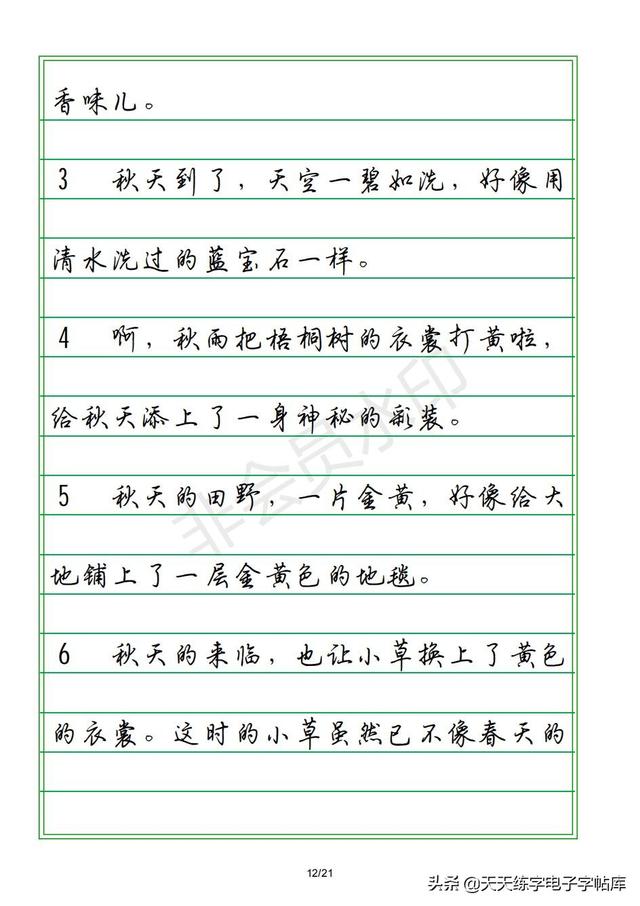 香味儿。
3 秋天到了，天空一碧如洗，好像用
清水洗过的蓝宝石一样。
4 啊，秋雨把梧桐树的衣裳打黄啦，
给秋天添上了一身神秘的彩装。
5 秋天的田野，一片金黄，好像给大
地铺上了一层金黄色的地毯。
6 秋天的来临，也让小草换上了黄色
的衣裳。这时的小草虽然已不像春天的
非会员水印
12/21
头条 @天天练字电子字帖库